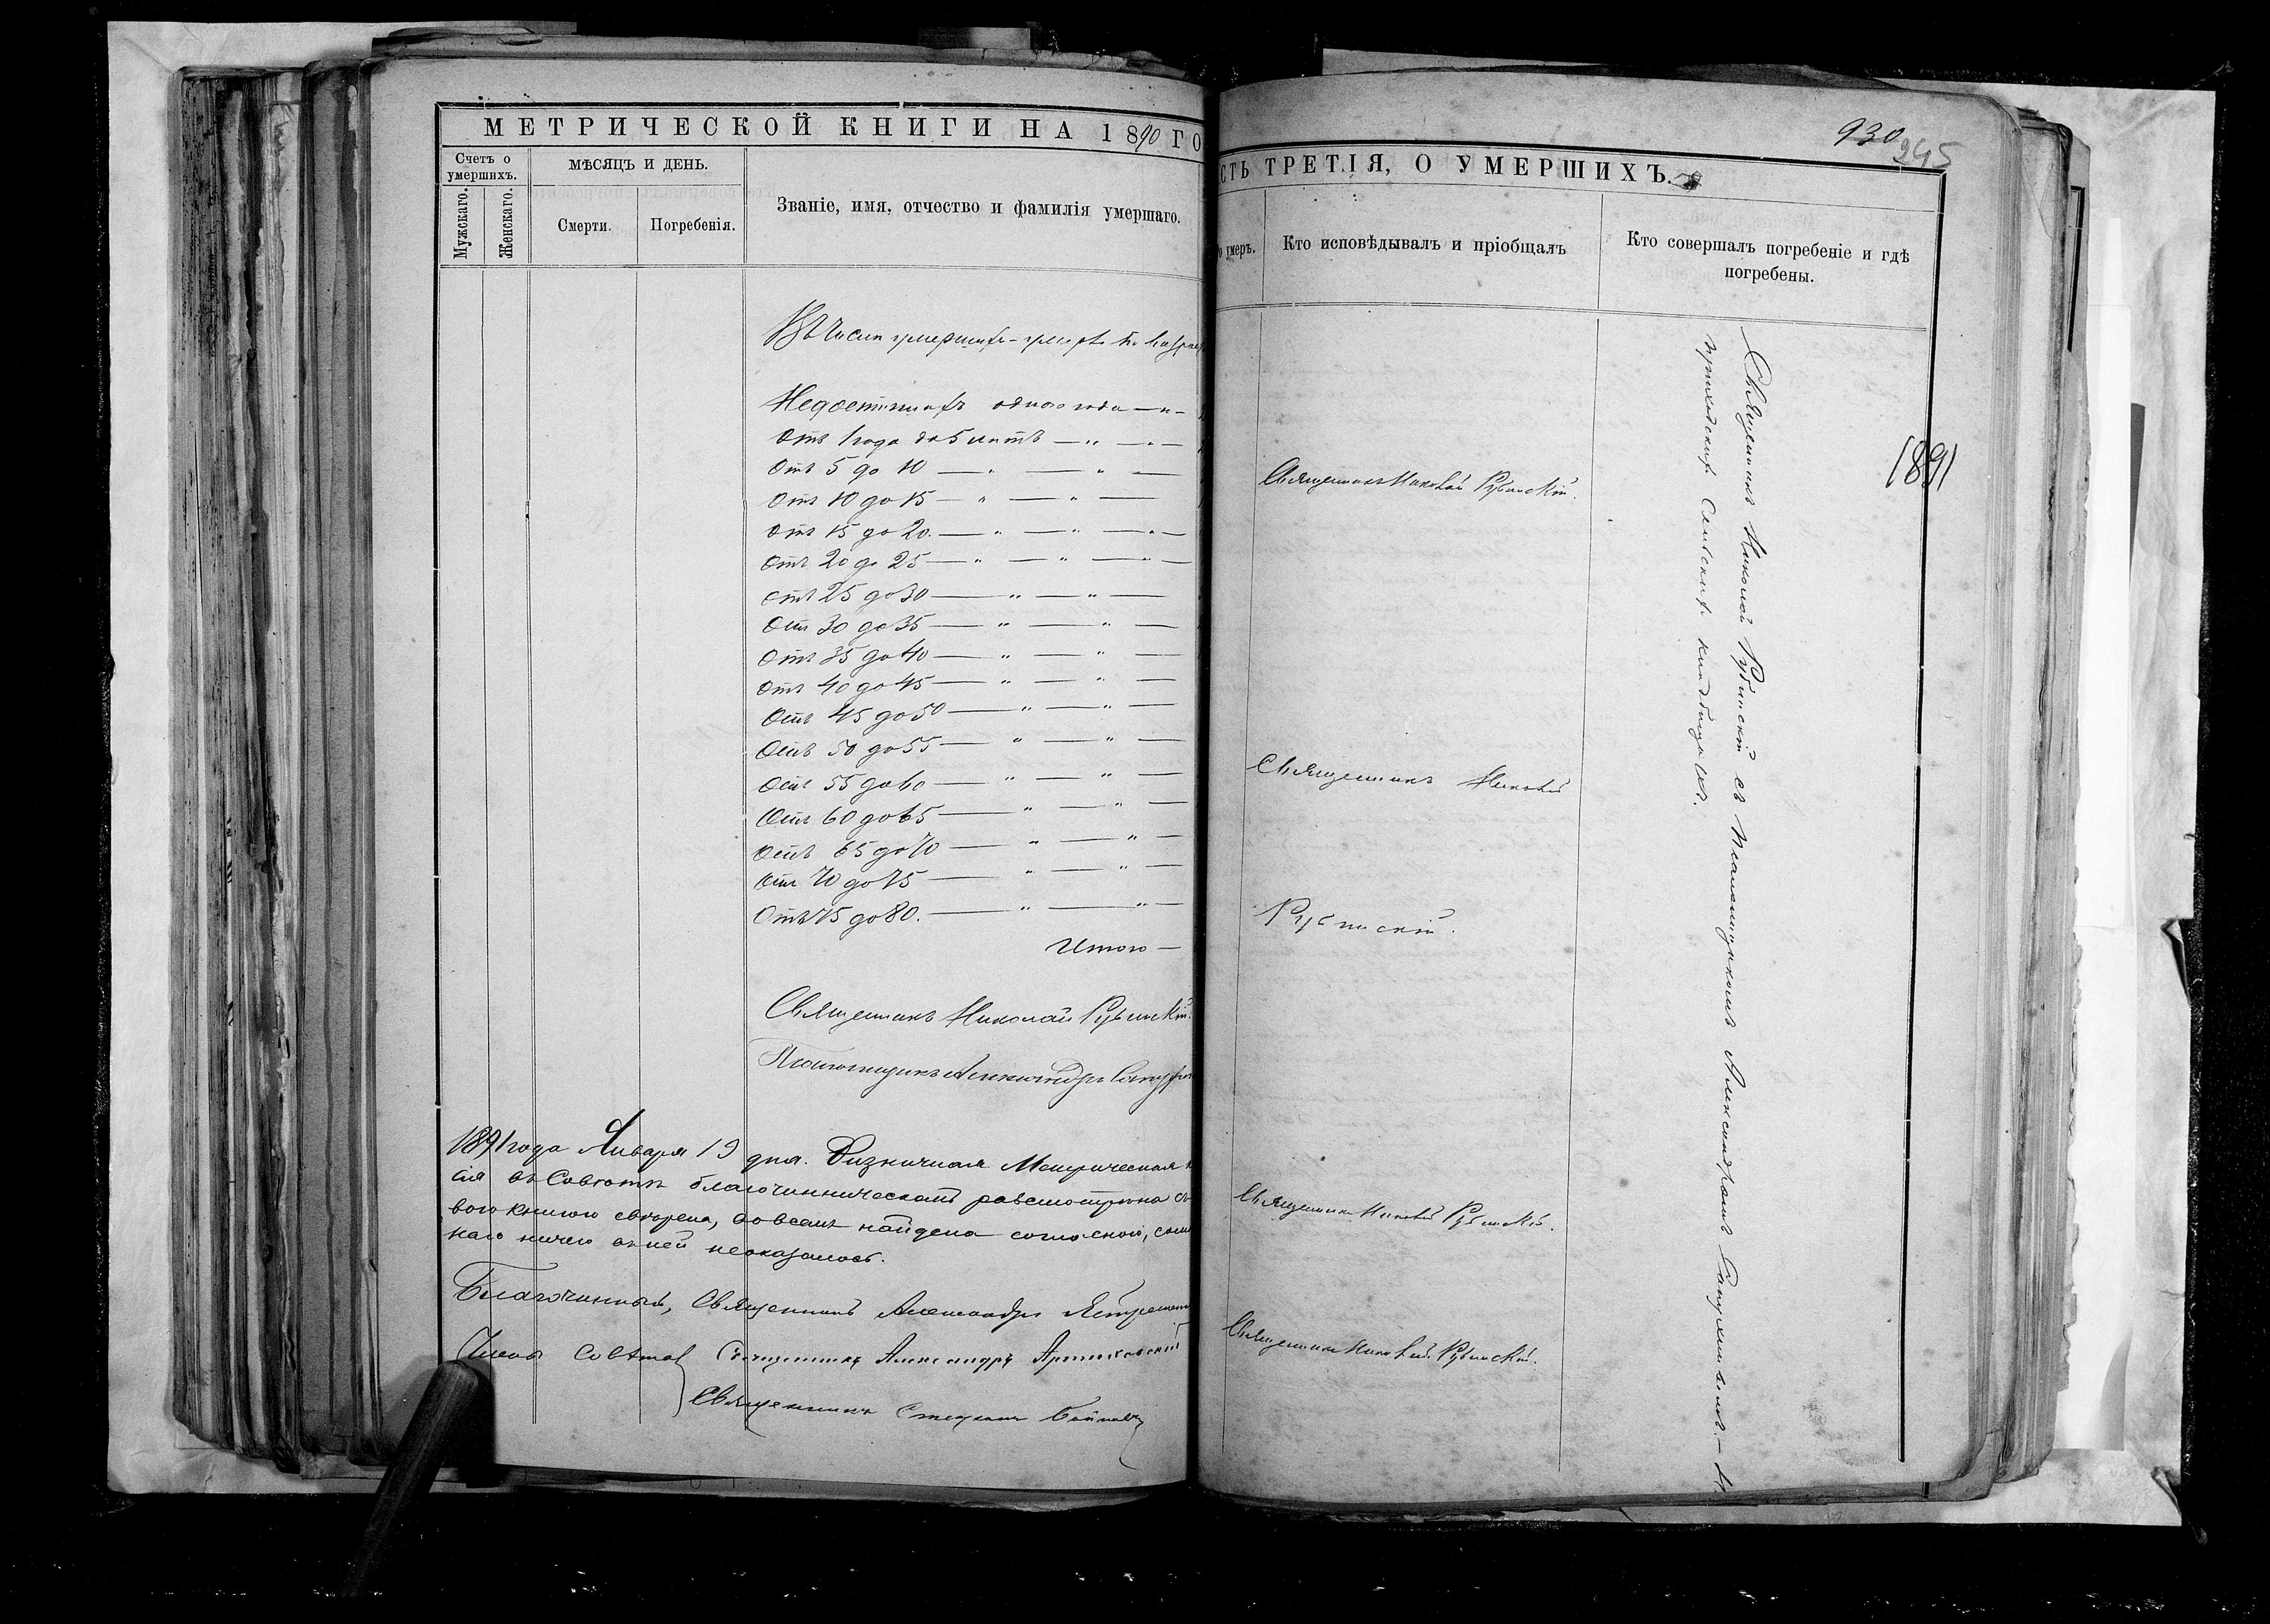 МЕТРИЧЕСКОЙ КНИГИ НА 1890 ГО
Счетъ о умершихъ.
Мужскаго.
Женскаго.
МѢСЯЦЪ И ДЕНЬ.
Смерти.
Погребенія.
Званіе, имя, отчество и фамилія умершаго.
Недостигшихъ одного года — „ —
Отъ 1 года до 5 лѣтъ — „ — „ —
Отъ 5 до 10 — „ — „ —
Отъ 10 до 15 — „ — „ —
Отъ 15 до 20. — „ — „ — „ —
Отъ 20 до 25 — „ — „ — „ —
Отъ 25 до 30 — „ — „ —
Отъ 30 до 35 — „ — „ —
Отъ 35 до 40 — „ — „ —
Отъ 40 до 45 — „ — „ —
Отъ 45 до 50 — „ — „ —
Отъ 50 до 55 — „ — „ —
Отъ 55 до 60 — „ — „ —
Отъ 60 до 65 — „ — „ —
Отъ 65 до 70 — „ — „ —
Отъ 70 до 75 — „ — „ —
Отъ 75 до 80. — „ — „ —
Итого —
Священникъ Николай Рубинскій.
Псаломщикъ Александръ
1891 года Января 19 дня. Метрическая
сія въ Совѣтѣ благочинническомъ разсмотрѣна съ
вою книгою свѣрена, во всемъ найдена согласною,
наго ничего въ ней неоказалось.
Благочинный, Священникъ Александръ
Члены Совѣта Священникъ Александръ
Священникъ Стефанъ
930
245
СТЬ ТРЕТІЯ, О УМЕРШИХЪ.
о умеръ.
Кто исповѣдывалъ и пріобщалъ
Кто совершалъ погребеніе и гдѣ
погребены.
1891
Священникъ Николай Рубинскій.
Священникъ Николай
Рубинскій.
Священникъ Николай Рубинскій.
Священникъ Николай Рубинскій.
Священникъ Николай Рубинскій съ Псаломщикомъ Александромъ
приходскихъ Сельскихъ кладбищахъ.